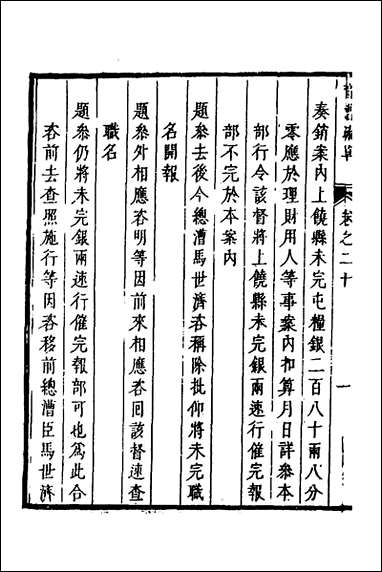 卷之二十
一
奏銷案內上饒縣未完屯糧銀二百八十兩八分
零應於理財用人等事案內扣算月日詳叅本
部行令該督將上饒縣未完銀兩速行催完報
部不完於本案內
題叅去後今總漕馬世濟咨稱除批仰將未完職
名開報
題叅外相應咨明等因前來相應咨回該督速查
職名
題叅仍將未完銀兩速行催完報部可也爲此合
咨前去查照施行等因咨移前總漕臣馬世濟